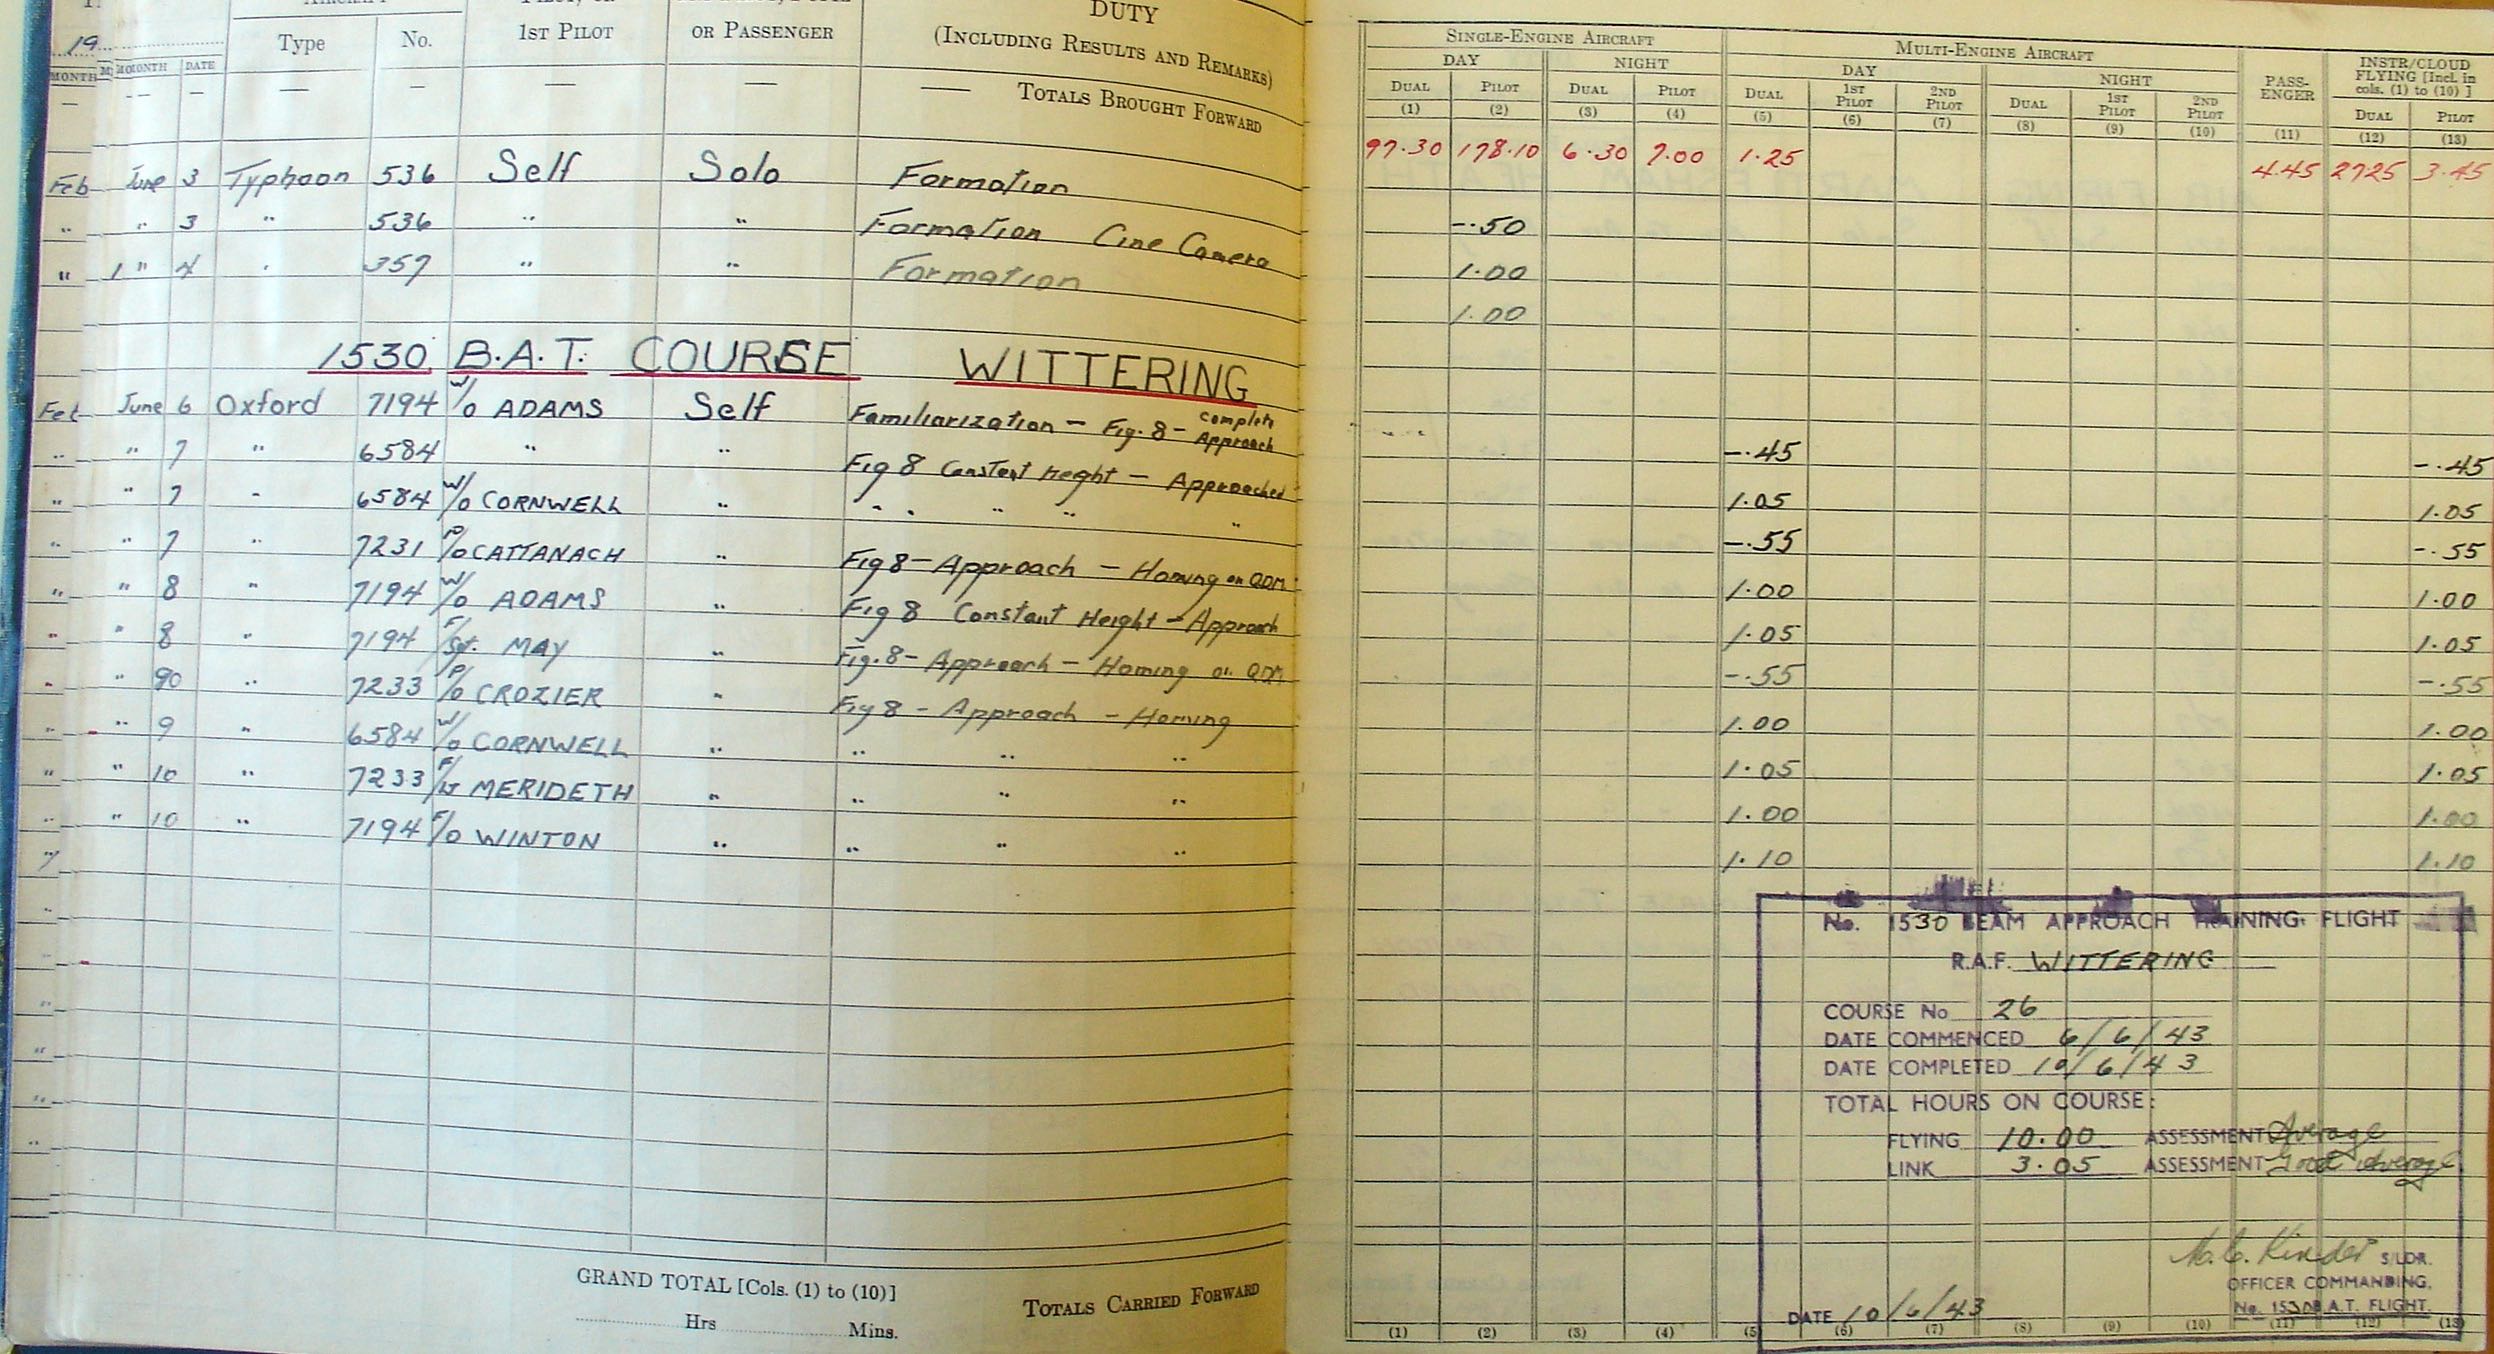 AIRCRAFT PILOT, OR 2ND PILOT, PUPIL DUTY
19 Type No. 1ST PILOT OR PASSENGER (INCLUDING RESULTS AND REMARKS)
MONTH MONTH DATE — — — — —— TOTALS BROUGHT FORWARD
SINGLE-ENGINE AIRCRAFT MULTI-ENGINE AIRCRAFT PASS-ENGER INSTR/CLOUD FLYING [Incl. in cols. (1) to (10) ]
DAY NIGHT DAY NIGHT
DUAL PILOT DUAL PILOT DUAL 1ST PILOT 2ND PILOT DUAL 1ST PILOT 2ND PILOT DUAL PILOT
(1) (2) (3) (4) (5) (6) (7) (8) (9) (10) (11) (12) (13)
97.30 178.10 6.30 7.00 1.25 4.45 2725 3.45
Feb June 3 Typhoon 536 Self Solo Formation -.50
" " 3 " 536 " " Formation Cine Camera 1.00
" " 4 " 357 " " Formation 1.00
1530 B.A.T. COURSE WITTERING
Feb June 6 Oxford 7194 W/O ADAMS Self Familiarization - Fig. 8 - Complete Approach -.45 -.45
" " 7 " 6584 " " Fig 8 Constant Height - Approached 1.05 1.05
" " 7 " 6584 W/O CORNWELL " " " " " " -.55 -.55
" " 7 " 7231 P/O CATTANACH " Fig 8 - Approach - Homing on QDM 1.00 1.00
" " 8 " 7194 W/O ADAMS " Fig 8 Constant Height - Approach 1.05 1.05
" " 8 " 7194 F/Sgt. MAY " Fig. 8 - Approach - Homing on QDM -.55 -.55
" " 9 " 7233 P/O CROZIER " Fig 8 - Approach - Homing 1.00 1.00
" " 9 " 6584 W/O CORNWELL " " " " 1.05 1.05
" " 10 " 7233 F/Lt MERIDETH " " " " 1.00 1.00
" " 10 " 7194 F/O WINTON " " " " 1.10 1.10
No. 1530 BEAM APPROACH TRAINING FLIGHT
R.A.F. WITTERING
COURSE No 26
DATE COMMENCED 6/6/43
DATE COMPLETED 10/6/43
TOTAL HOURS ON COURSE:
FLYING 10.00 ASSESSMENT Average
LINK 3.05 ASSESSMENT Good Average
M.C. Kinder S/LDR.
OFFICER COMMANDING,
No. 1530 B.A.T. FLIGHT.
DATE 10/6/43
GRAND TOTAL [Cols. (1) to (10)]
Hrs Mins.
TOTALS CARRIED FORWARD
(1) (2) (3) (4) (5) (6) (7) (8) (9) (10) (11) (12) (13)